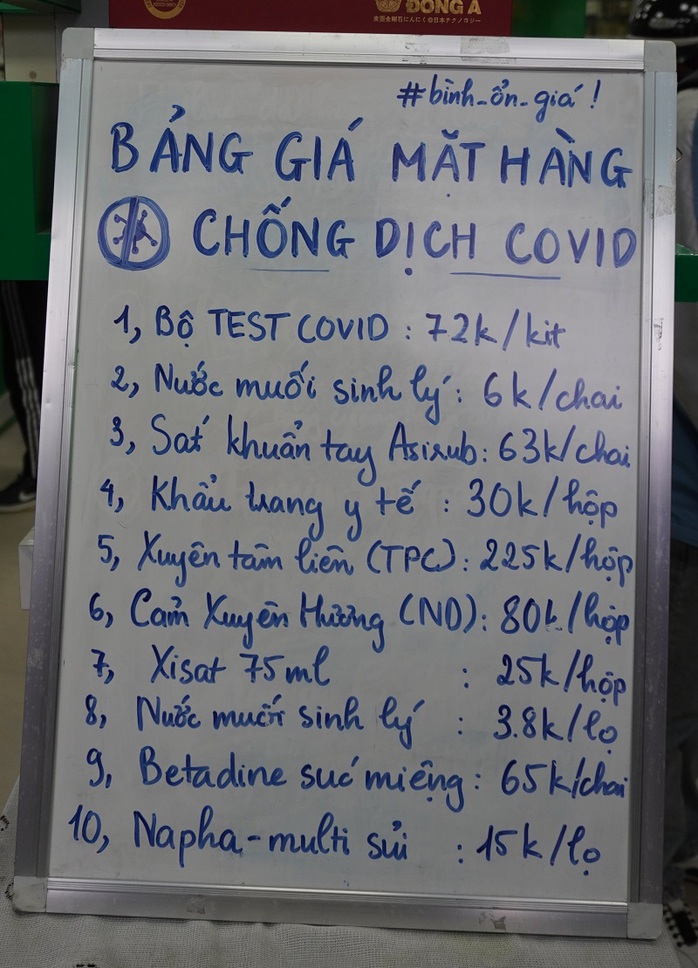 ĐÔNG Á
#bình-ổn-giá!
BẢNG GIÁ MẶT HÀNG
CHỐNG DỊCH COVID
1, Bộ TEST COVID : 72k/kit
2, Nước muối sinh lý : 6k/chai
3, Sát khuẩn tay Asirub : 63k/chai
4, Khẩu trang y tế : 30k/hộp
5, Xuyên tâm liên (TPC) : 225k/hộp
6, Cảm Xuyên Hương (ND) : 80k/hộp
7, Xisat 75ml : 25k/hộp
8, Nước muối sinh lý : 3.8k/lọ
9, Betadine súc miệng : 65k/chai
10, Napha-multi sủi : 15k/lọ